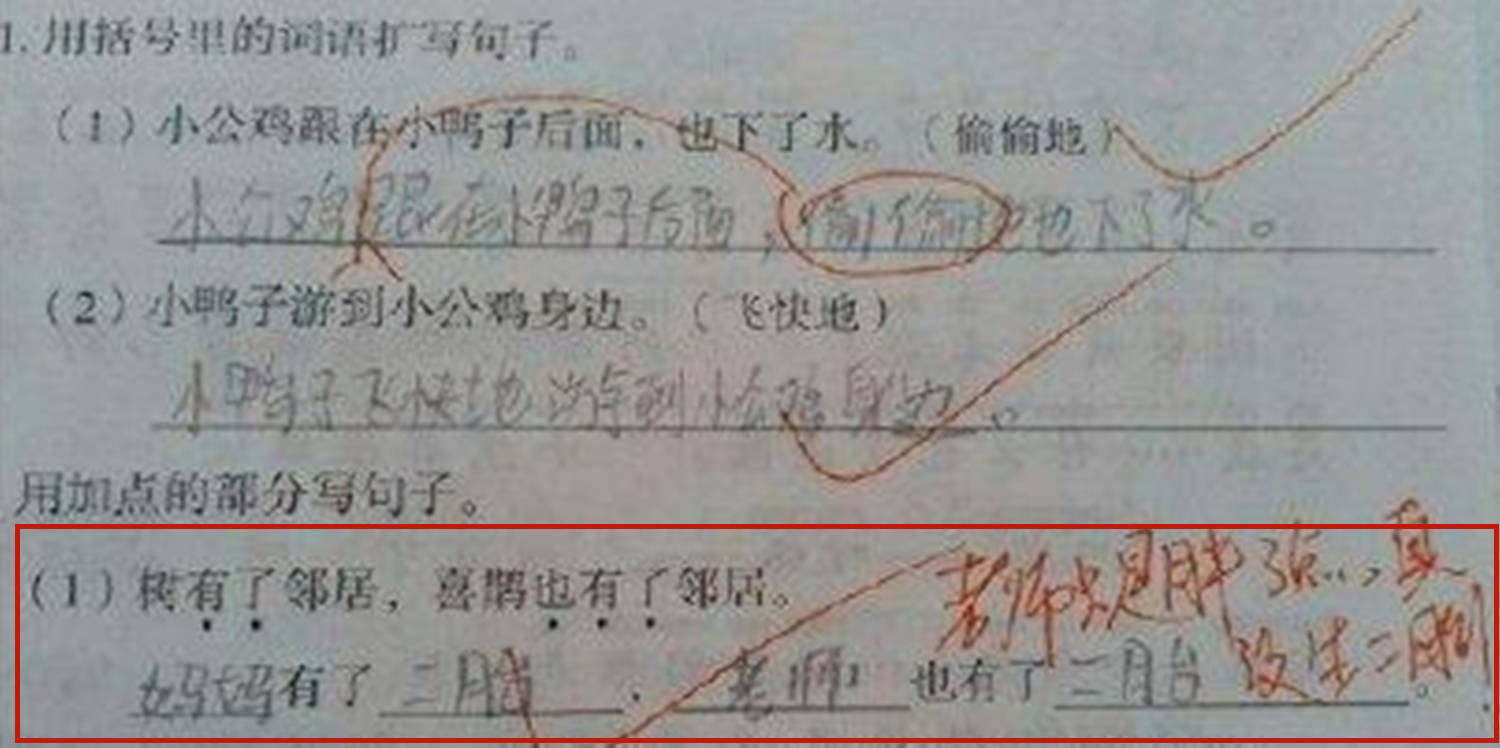 1.用括号里的词语扩写句子。
（1）小公鸡跟在小鸭子后面，也下了水。（偷偷地）
小公鸡跟在小鸭子后面，偷偷地也下了水。
（2）小鸭子游到小公鸡身边。（飞快地）
小鸭子飞快地游到小公鸡身边。
用加点的部分写句子。
（1）树有了邻居，喜鹊也有了邻居。
老师只是胖了点...，真
没生二胎!
妈妈有了二胎，老师也有了二胎。